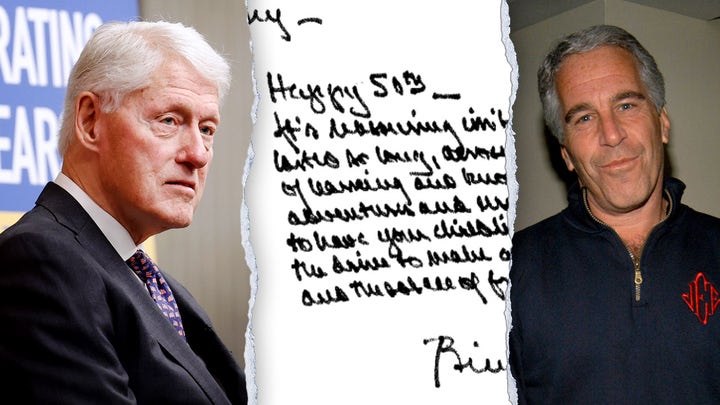 RATING
EAR
Happy 50th_
It's reassuring isn't
lasted as long, across
of learning and know
adventures and
to have your childli
the drive to make a
and the solace of f